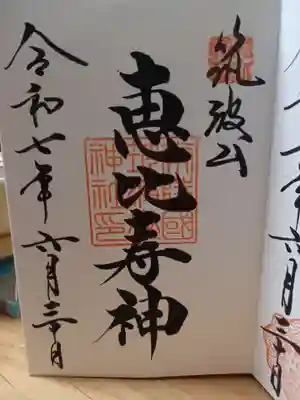 筑波山
恵比寿神
神社印
令和七年六月三十日